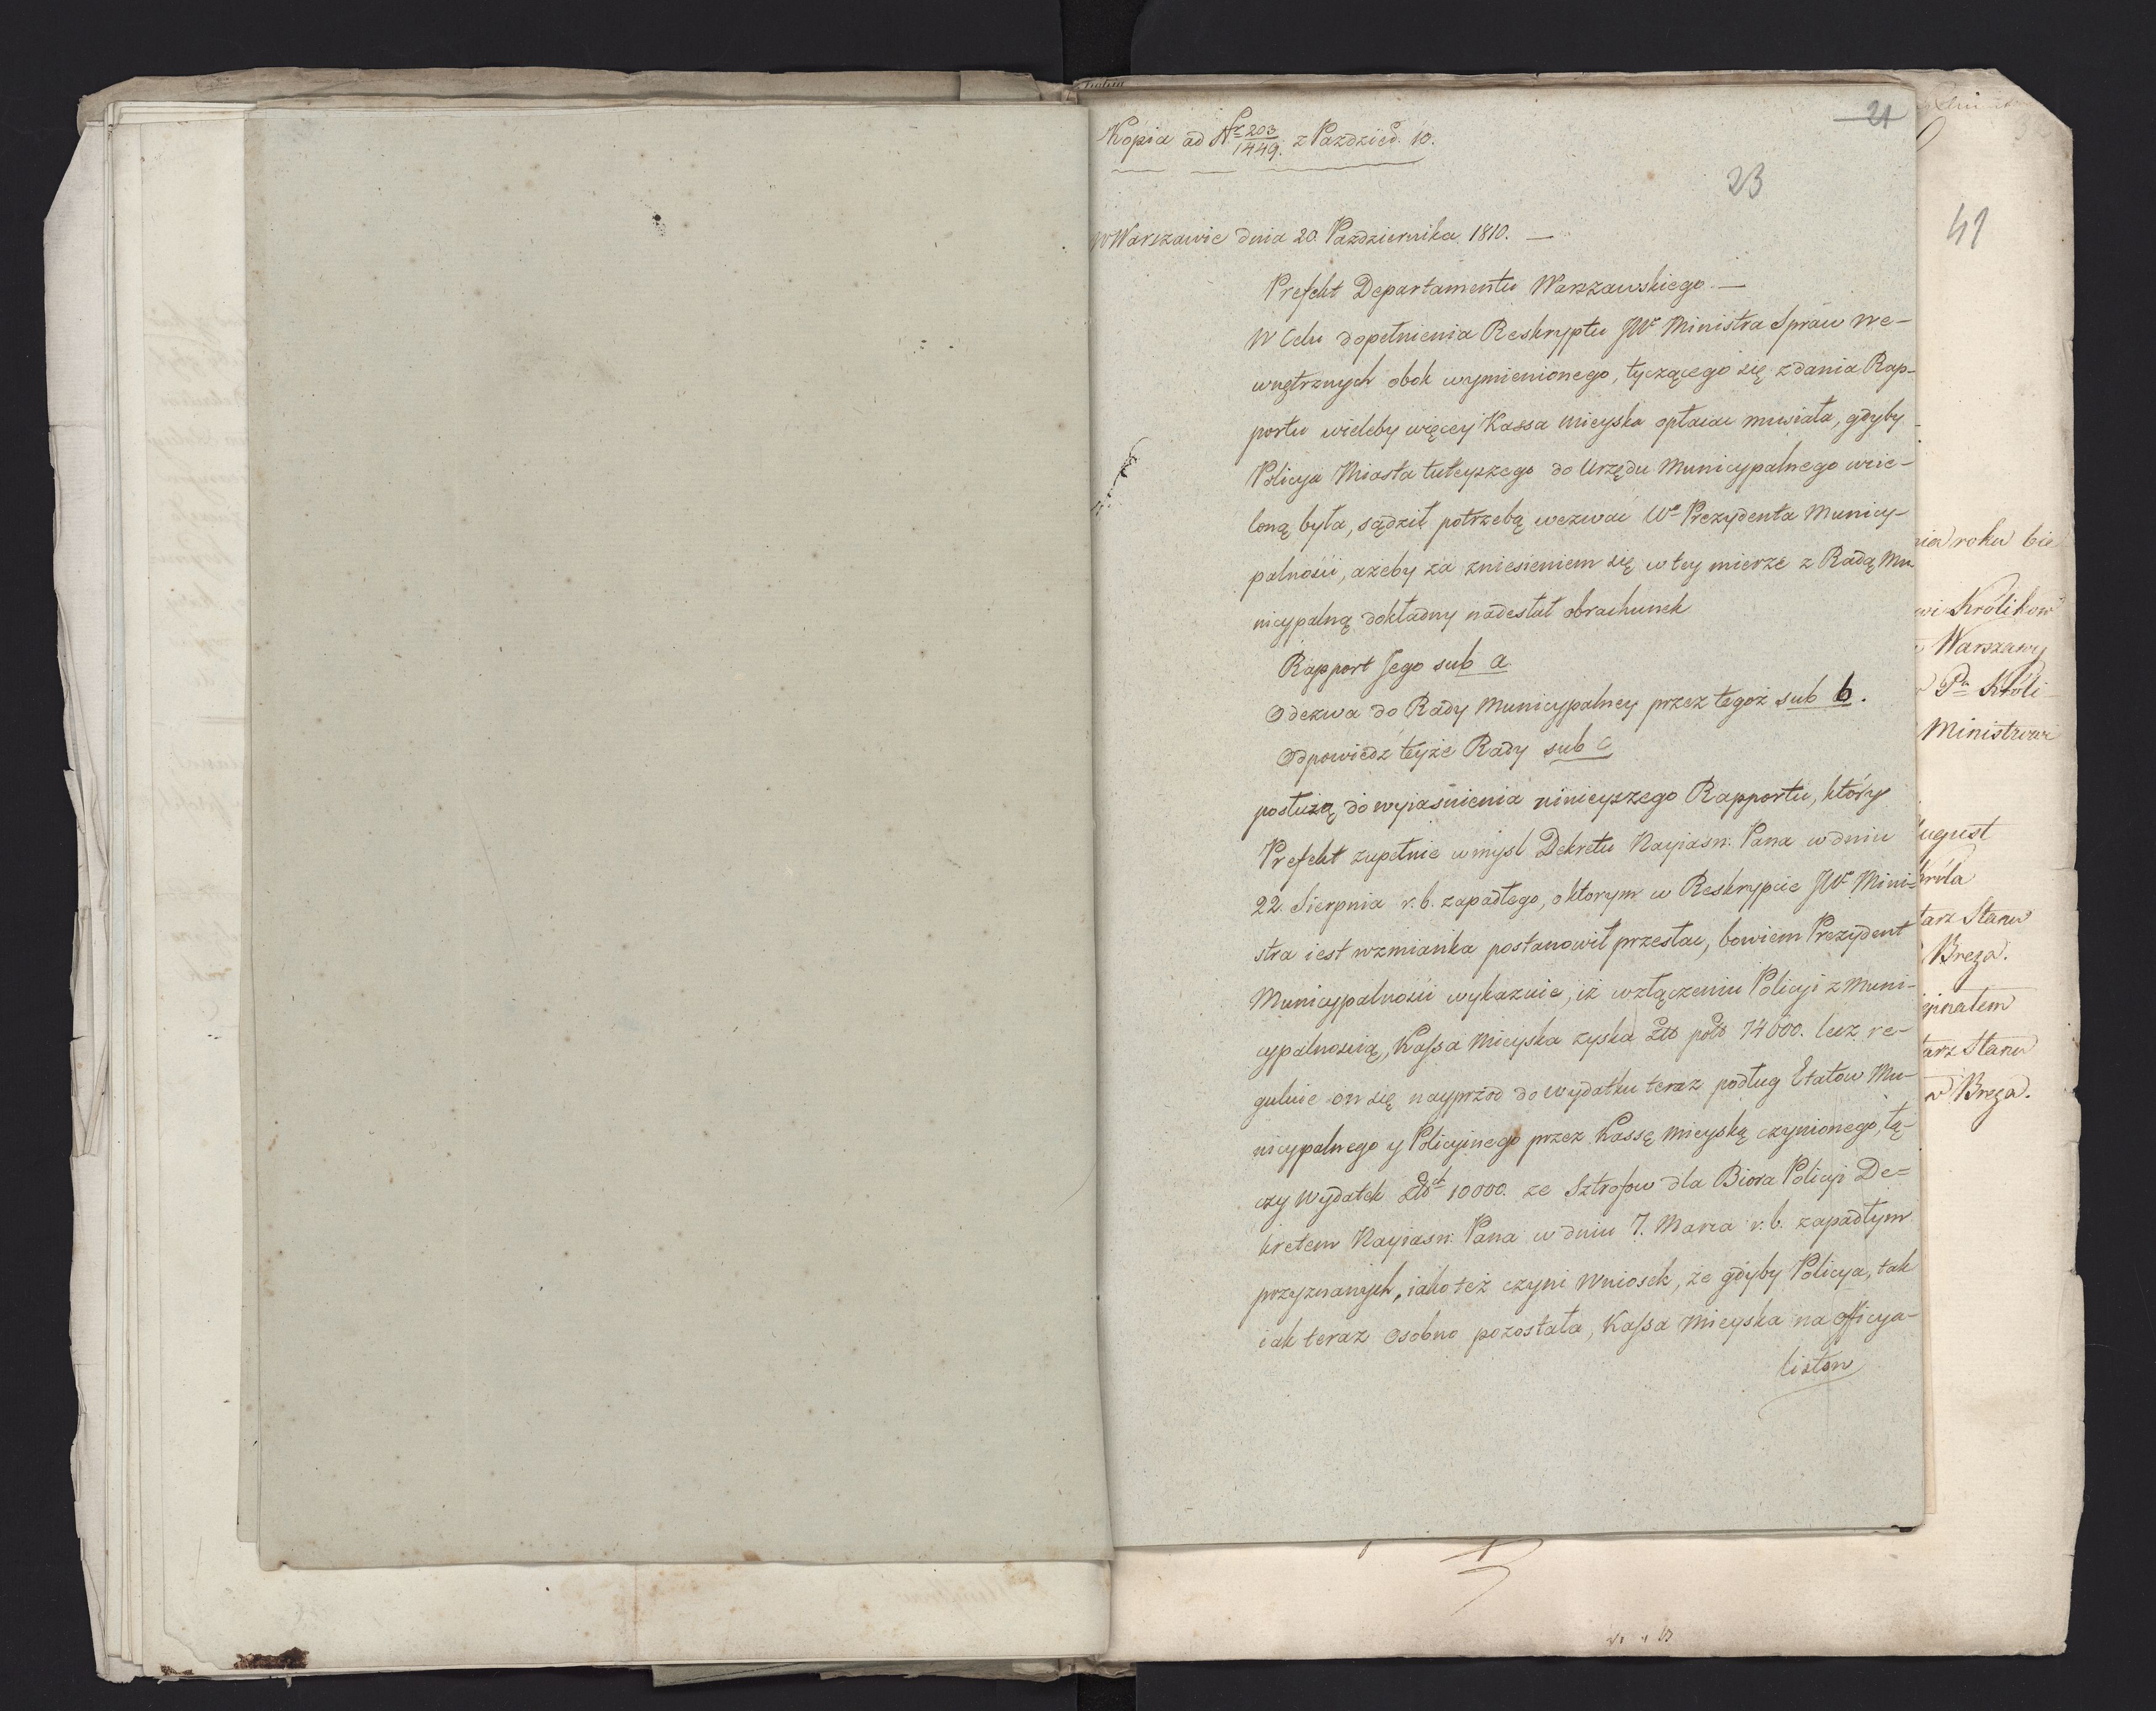 21
Kopia ad Nr 203/1449. z Paździer. 10.
23
W Warszawie dnia 20. Października 1810. —
Prefekt Departamentu Warszawskiego. —
W Celu dopełnienia Reskryptu JWo Ministra Spraw We-
wnętrznych obok wymienionego, tyczącego się zdania Rap-
portu wieleby więcey Kassa Mieyska opłacac musiała, gdyby
Policya Miasta tuteyszego do Urzędu Municypalnego wcie-
loną była, sądził potrzebą wezwać Wo Prezydenta Municy-
palności, ażeby za zniesieniem się w tey mierze z Radą Mu-
nicypalną dokładny nadesłał obrachunek
Rapport Jego sub a.
Odezwa do Rady Municypalney przez tegoż sub b.
Odpowiedz teyże Rady sub c
posłużą do wyiaśnienia ninieyszego Rapportu, który
Prefekt zupełnie w myśl Dekretu Nayiasn: Pana w dniu
22. Sierpnia r. b. zapadłego, o ktorym w Reskrypcie JWo Mini=
stra iest wzmianka postanowił przesłac, bowiem Prezydent
Municypalności wykazuie, iż w złączeniu Policyi z Muni-
cypalnością, Kassa Mieyska zyska Złtt poltt 74000. lecz re-
guluie on się nayprzód do wydatku teraz podług Etatow Mu-
nicypalnego y Policyinego przez Kassę mieyską czynionego, łą-
czy Wydatek Złtch 10000. ze Sztrafow dla Biora Policyi De=
kretem Nayiasn: Pana w dniu 7. Marca r. b. zapadłym
przyznanych, iako też czyni Wniosek, że gdyby Policya, tak
iak teraz Osobno pozostała, Kassa Mieyska na Officya-
listow
41
nia roku bie
Królikow
Warszawy
Pa Króli
Ministrow
ugust
króla
tarz Stanu
Breza.
ginałem
tarz Stanu
Breza.